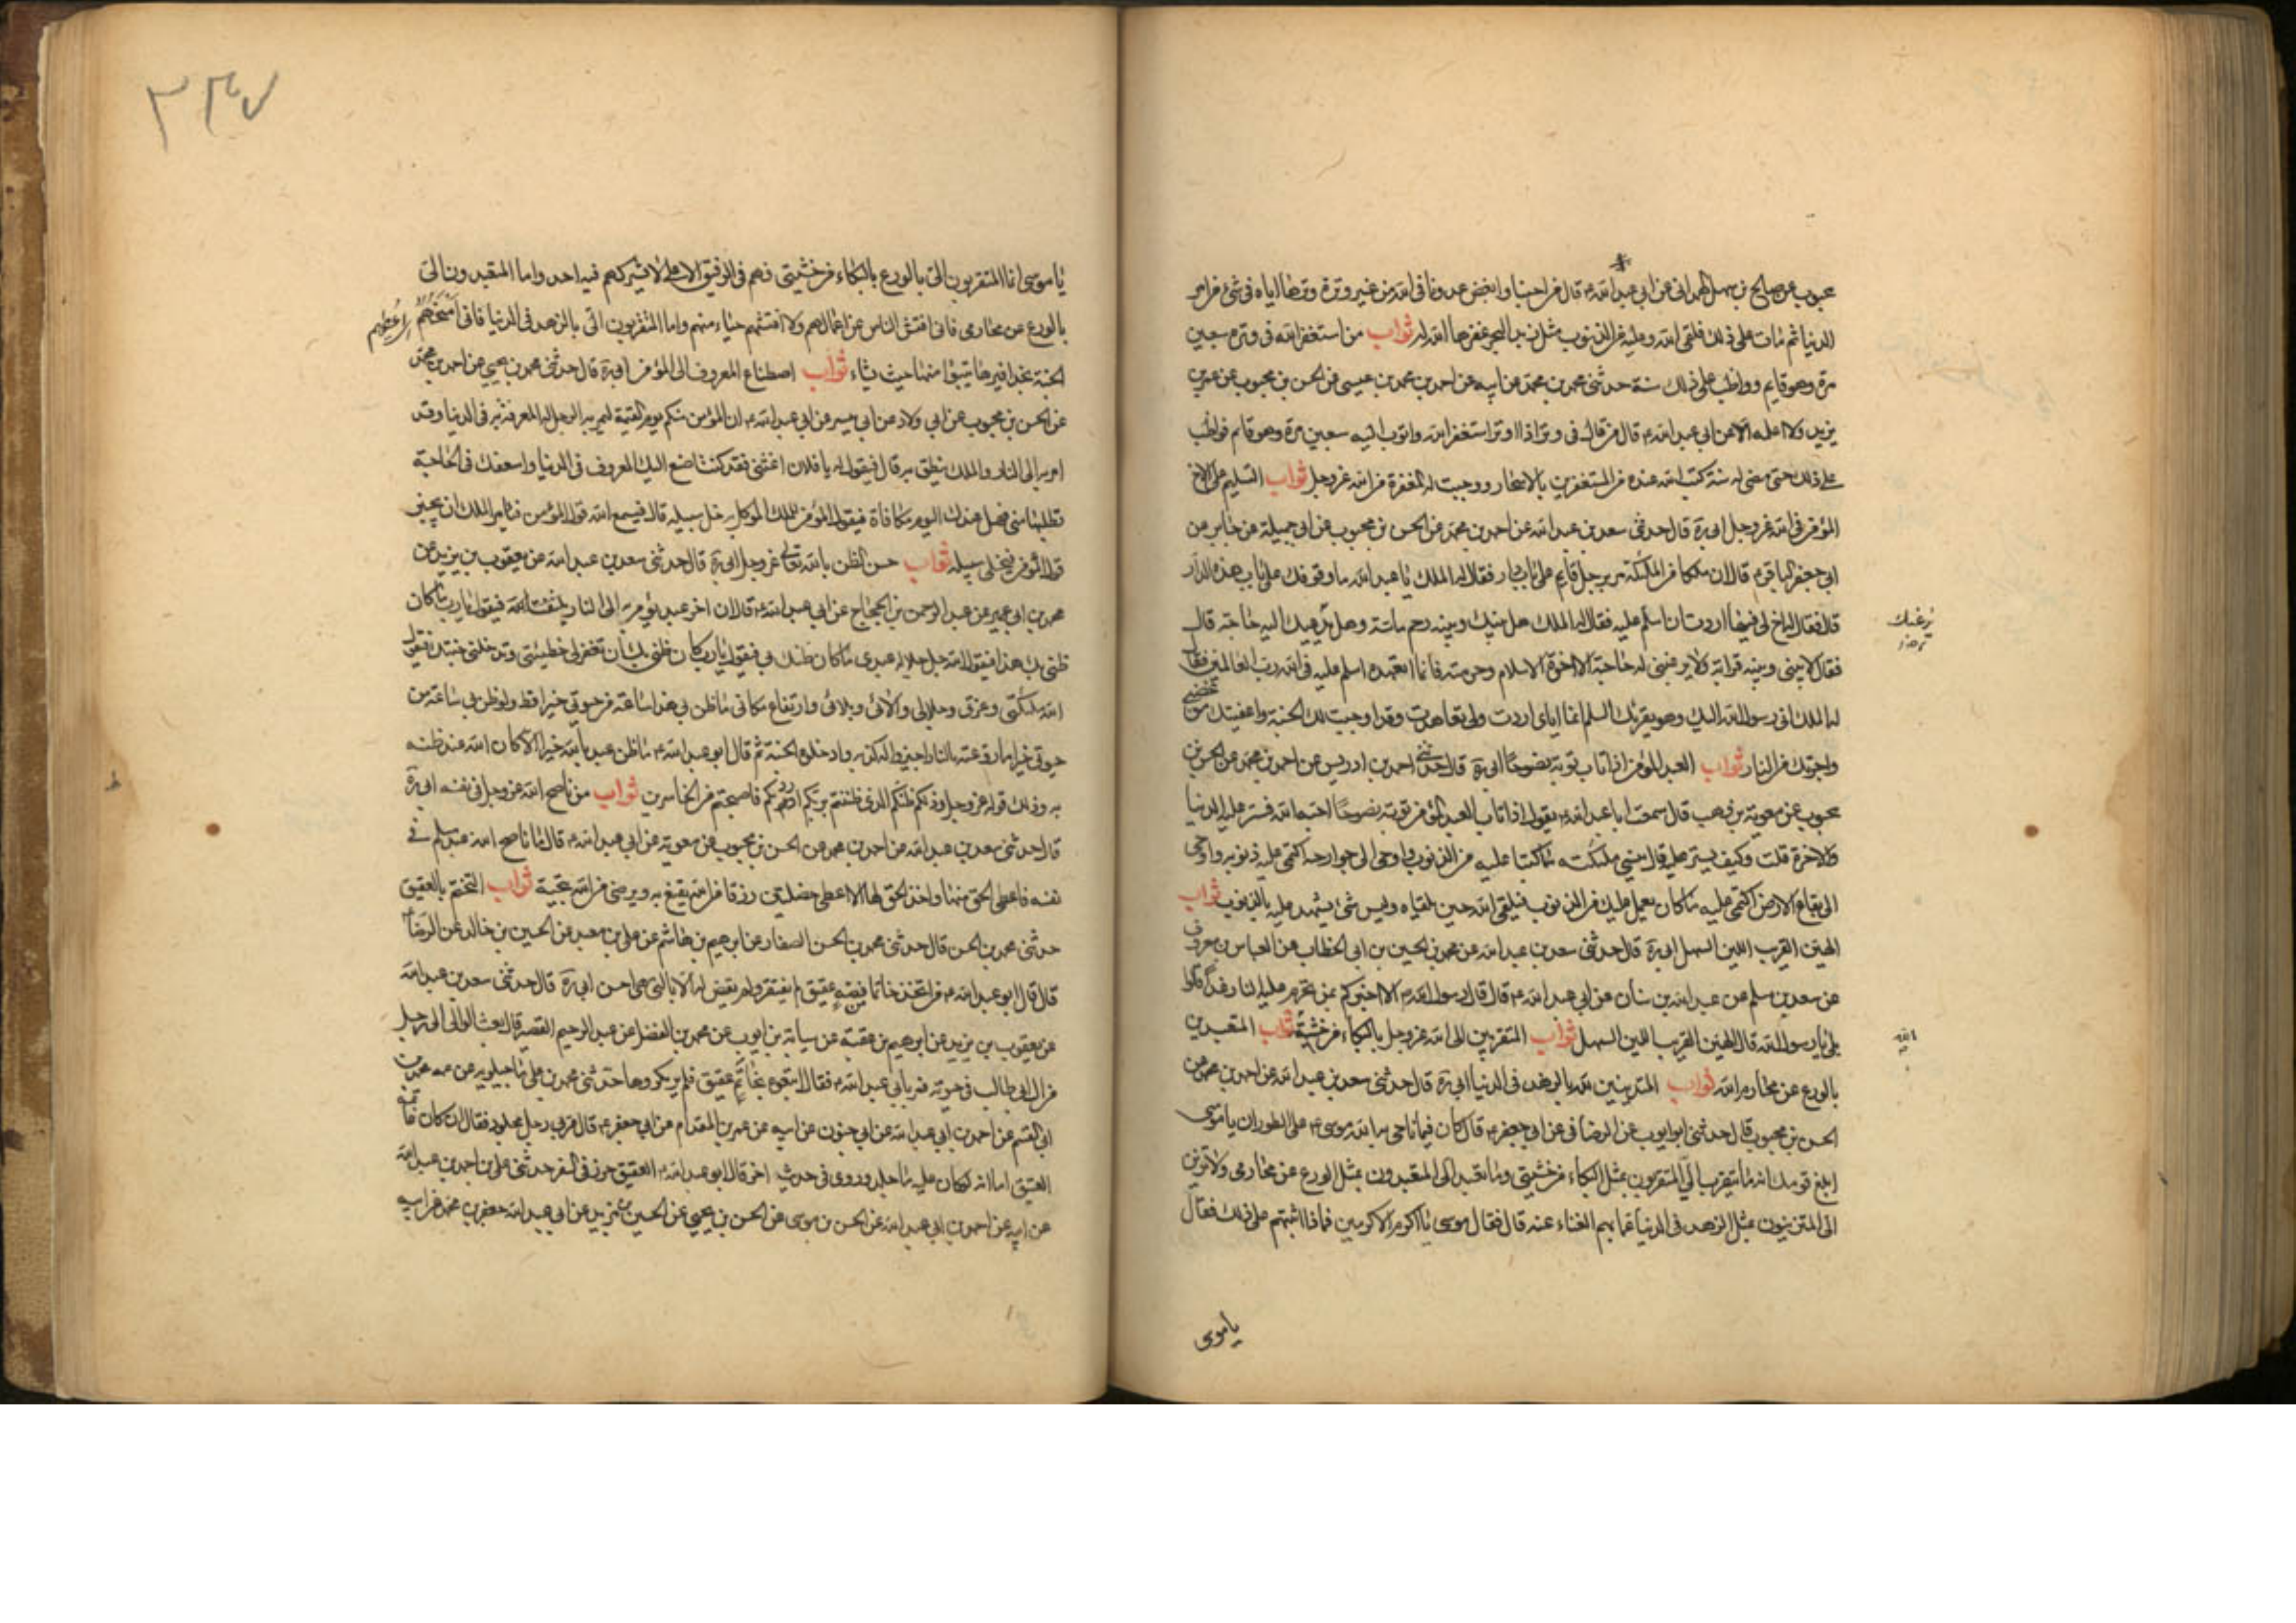 محبوب عن صالح بن سهل الهمداني عن ابي عبد الله ع قال من احبنا وابغض عدونا في الله من غير وترة وترها اياه في شئ من امر
الدنيا ثم مات على ذلك فلقى الله وعليه من الذنوب مثل زبد البحر غفرها الله له ثواب من استغفر الله في وتره سبعين
مرة وهو قايم وواظب على ذلك سنة حدثني محمد بن عن ابيه عن احمد بن محمد بن عيسى عن الحسن بن محبوب عن عمر بن
يزيد ولا اعلمه الا عن ابي عبد الله ع قال من قال في وتره اذا اوتر استغفر الله واتوب اليه سبعين مرة وهو قائم فواظب
على ذلك حتى يمضى له سنة كتب الله عنده من المستغفرين بالاسحار ووجبت له المغفرة من الله عز وجل ثواب التسليم على الاخ
المؤمن في الله عز وجل ابي ره قال حدثني سعد بن عبد الله عن احمد بن محمد عن الحسن بن محبوب عن ابي جميلة عن جابر عن
ابي جعفر الباقر ع قال ان ملكا من الملئكة مر برجل قايم على باب دار فقال له الملك يا عبد الله ما وقوفك على باب هذه الدار
قال فقال له اخ لي فيها اردت ان اسلم عليه فقال له الملك هل بينك وبينه رحم ماسة وهل نزعتك اليه حاجة قال
فقال لا بيني وبينه قرابة ولا نزعتني له حاجة الا اخوة الاسلام وحرمته فانا اتعهده اسلم عليه في الله رب العالمين فقال
له الملك اني رسول الله اليك وهو يقرئك السلم انما اياي اردت ولي تعاهدت وقد اوجبت لك الجنة واعفيتك من غضبي
واجرتك من النار ثواب العبد المؤمن اذا تاب توبة نصوحا ابي ره قال حدثني احمد بن ادريس عن احمد بن محمد عن الحسن بن
محبوب عن معوية بن وهب قال سمعت ابا عبد الله ع يقول اذا تاب العبد المؤمن توبة نصوحا احبه الله فستر عليه في الدنيا
والاخرة قلت وكيف يستر عليه قال ينسي ملكيه ما كتبا عليه من الذنوب واوحى الى جوارحه اكتمي عليه ذنوبه واوحى
الى بقاع الارض اكتمي عليه ما كان يعمل عليك من الذنوب فيلقى الله حين يلقاه وليس شئ يشهد عليه بالذنوب ثواب
الهين القريب اللين السهل ابي ره قال حدثني سعد بن عبد الله عن محمد بن الحسين بن ابي الخطاب عن العباس بن معروف
عن سعدان بن مسلم عن عبد الله بن سنان عن ابي عبد الله ع قال قال رسول الله ص الا اخبركم بمن تحرم عليه النار غدا قالوا
بلى يا رسول الله قال الهين القريب اللين السهل ثواب المتقربين الى الله عز وجل بالبكاء من خشية ثواب المتعبدين
بالورع عن محارم الله ثواب المتزينين لله بالزهد في الدنيا ابي ره قال حدثني سعد بن عبد الله عن احمد بن محمد عن
الحسن بن محبوب قال حدثني ابو ايوب عن الوصافي عن ابي جعفر ع قال كان فيما ناجى به الله موسى ع على الطور ان يا موسى
ابلغ قومك انه ما يتقرب الي المتقربون بمثل البكاء من خشيتي وما تعبد لي المتعبدون بمثل الورع عن محارمي ولا تزين
الى المتزينون بمثل الزهد في الدنيا عما بهم الغناء عنه قال فقال موسى يا اكرم الاكرمين فماذا اثبتهم على ذلك فقال
يا موسى
٣٣٧
يا موسى اما المتقربون الي بالورع بالبكاء من خشيتي فهم في الرفيق الاعلى لا يشركهم فيه احد واما المتعبدون الي
بالورع عن محارمي فاني افتش الناس عن اعمالهم ولا افتشهم حياء منهم واما المتقربون الي بالزهد في الدنيا فاني امنحهم
الجنة بحذافيرها يتبوؤا منها حيث يشاء ثواب اصطناع المعروف الى المؤمن ابي ره قال حدثني محمد بن يحيى عن احمد بن محمد
عن الحسن بن محبوب عن ابي ولاد عن ابي عبد الله ع ان المؤمن منكم يوم القيمة ليمر به الرجل له المعرفة به في الدنيا وقد
امر به الى النار والملك ينطلق به قال فيقول له يا فلان اغثني فقد كنت اصنع اليك المعروف في الدنيا واسعفك في الحاجة
تطلبها مني فهل عندك اليوم مكافاة فيقول المؤمن للملك الموكل به خل سبيله قال فيسمع الله قول المؤمن فيامر الملك ان يجيز
قول المؤمن فيخلى سبيله ثواب حسن الظن بالله تعالى عز وجل ابي ره قال حدثني سعد بن عبد الله عن يعقوب بن يزيد عن
محمد بن ابي عمير عن عبد الرحمن بن الحجاج عن ابي عبد الله ع قال ان اخر عبد يؤمر به الى النار يلتفت فيقول يا رب ما كان
ظني بك هذا فيقول الله جل جلاله عبدي ما كان ظنك بي فيقول يا رب كان ظني بك ان تغفر لي خطيئتي وتدخلني جنتك فيقول
الله ملئكتي وعزتي وجلالي والائي وبلائي وارتفاع مكاني ما ظن بي هذا ساعة من حيوته خيرا قط ولو ظن بي ساعة من
حيوته خيرا ما روعته بالنار اجيزوا له كذبه وادخلوه الجنة ثم قال ابو عبد الله ع ما ظن عبد بالله خيرا الا كان الله عند ظنه
به وذلك قوله عز وجل وذلكم ظنكم الذي ظننتم بربكم ارديكم فاصبحتم من الخاسرين ثواب من ناصح الله عز وجل في نفسه ابي ره
قال حدثني سعد بن عبد الله عن احمد بن محمد عن الحسن بن محبوب عن معوية عن ابي عبد الله ع قال ما ناصح الله عبد مسلم في
نفسه فاعطى الحق منها واخذ الحق لها الا اعطي خصلتين رزقا من الله يقنع به ورضى من الله ينجيه ثواب التختم بالعقيق
حدثني محمد بن الحسن قال حدثني محمد بن الحسن الصفار عن ابراهيم بن هاشم عن علي بن معبد عن الحسين بن خالد عن الرضا ع
قال قال ابو عبد الله ع من اتخذ خاتما فصه عقيق لم يفتقر ولم يقض له الا بالتي هي احسن ابي ره قال حدثني سعد بن عبد الله
عن يعقوب بن يزيد عن ابراهيم بن عقبة عن سيابة بن ايوب عن محمد بن الفضل عن عبد الرحيم القصير قال بعث الوالي الى رجل
من ال ابي طالب في جناية فمر بابي عبد الله ع فقال اتبعوه بخاتم عقيق فلم ير مكروها حدثني محمد بن علي ماجيلويه عن عمه محمد بن
ابي القسم عن احمد بن ابي عبد الله عن ابيه عن عمرو بن ابي المقدام عن ابي جعفر ع قال مر به رجل مجلود فقال اين كان خاتمه
العقيق اما انه لو كان عليه ما جلد وروى في حديث اخر قال ابو عبد الله ع العقيق حرز في السفر حدثني علي بن احمد بن عبد الله
عن ابيه عن احمد بن ابي عبد الله عن الحسن بن موسى عن الحسن بن يحيى عن الحسين بن يزيد عن ابي عبد الله جعفر بن محمد عن ابيه